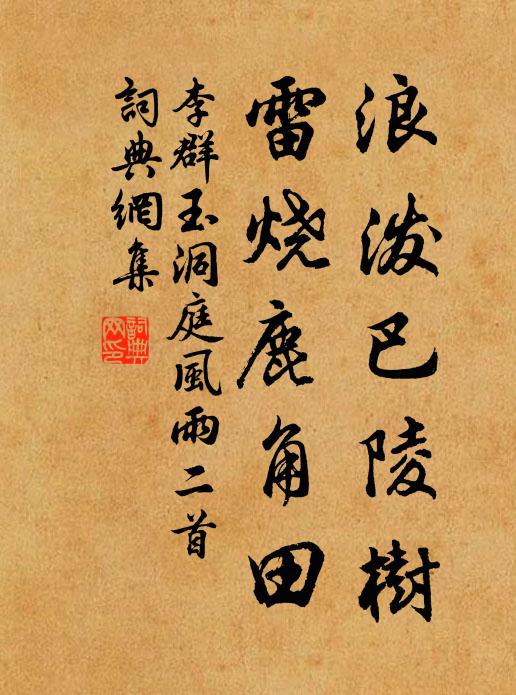 浪泼巴陵樹
雷烧鹿角田
李群玉洞庭風雨二首
詞典網集
詞典网印